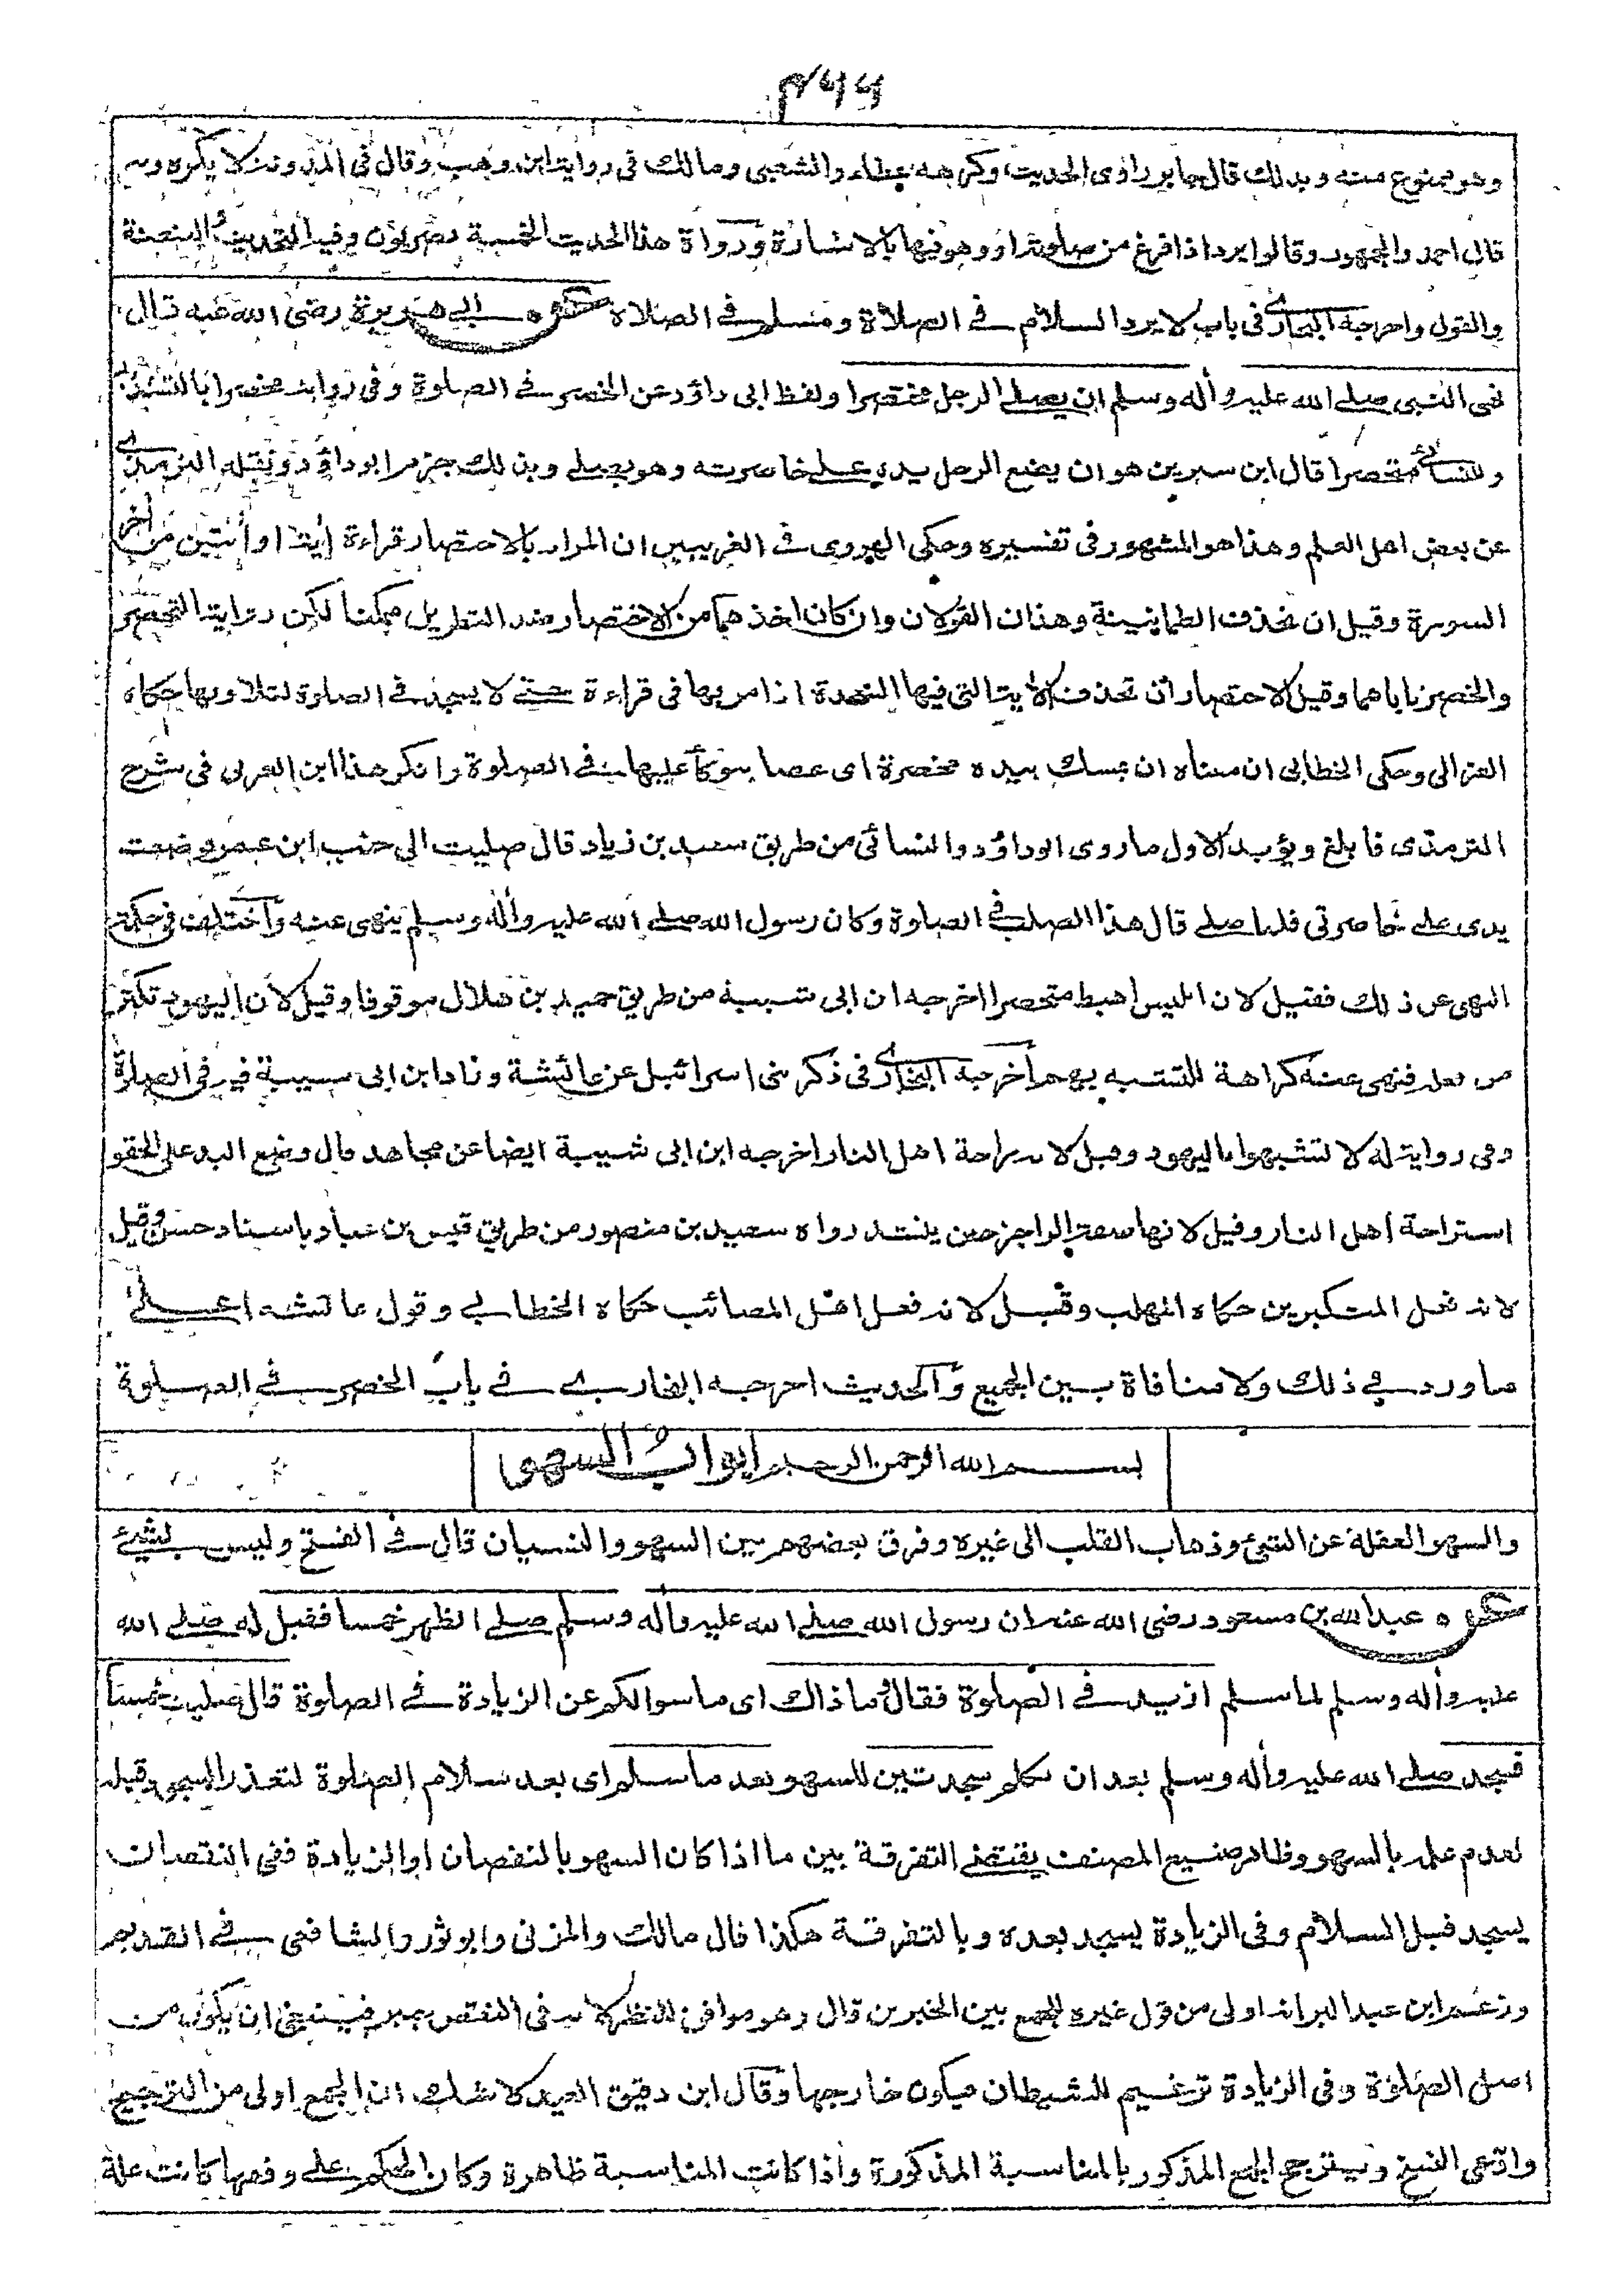 وهو ممنوع منه وبذلك قال جابر راوى الحديث وكرهه عطاء والشعبى ومالك فى رواية ابن وهب وقال فى المدونة لا يكره وبه
قال احمد والجمهور وقالوا يرد اذا فرغ من صلوته او وهو فيها بالاشارة ورواة هذا الحديث الخمسة بصريون وفيه التحديث والعنعنة
والقول واخرجه البخارى فى باب لا يرد السلام فى الصلاة ومسلم فى الصلاة عن ابى هريرة رضى الله عنه قال
نهى النبى صلى الله عليه وأله وسلم ان يصلى الرجل مختصرا ولفظ ابى داؤد عن الخصر فى الصلوة وفى رواية مخصرا بالتشديد
وللنسائى متخصرا قال ابن سيرين هو ان يضع الرجل يده على خاصرته وهو يصلى وبذلك جزم ابو داؤد ونقله الترمذى
عن بعض اهل العلم وهذا هو المشهور فى تفسيره وحكى الهروى فى الغريبين ان المراد بالاختصار قراءة أية او أيتين من أخر
السورة وقيل ان يحذف الطمانينة وهذان القولان وان كان اخذهما من الاختصار ضد التطويل ممكنا لكن رواية التخصر
والخصر تاباهما وقيل الاختصار ان تحذف الاية التى فيها السجدة اذا مر بها فى قراءة حتى لا يسجد فى الصلوة لتلاوتها حكاه
الغزالى وحكى الخطابى ان معناه ان يمسك بيده مخصرة اى عصا يتوكأ عليها فى الصلوة وانكر هذا ابن العربى فى شرح
الترمذى فابلغ ويؤيد الاول ما روى ابو داؤد والنسائى من طريق سعيد بن زياد قال صليت الى جنب ابن عمر وضعت
يدى على خاصرتى فلما صلى قال هذا الصلب فى الصلوة وكان رسول الله صلى الله عليه وأله وسلم ينهى عنه واختلف فى حكمة
النهى عن ذلك فقيل لان ابليس اهبط متخصرا اخرجه ابن ابى شيبة من طريق حميد بن هلال موقوفا وقيل لان اليهود تكثر
من فعله فنهى عنه كراهة للتشبه بهم اخرجه البخارى فى ذكر بنى اسرائيل عن عائشة وزاد ابن ابى شيبة فيه فى الصلوة
وفى رواية له لا تشبهوا باليهود وقيل لانه راحة اهل النار اخرجه ابن ابى شيبة ايضا عن مجاهد قال وضع اليد على الحقو
استراحة اهل النار وقيل لانها صفة الراجز حين ينشد رواه سعيد بن منصور من طريق قيس بن عباد باسناد حسن وقيل
لانه فعل المتكبرين حكاه المهلب وقيل لانه فعل اهل المصائب حكاه الخطابى وقول عائشة اعلى
ما ورد فى ذلك ولا منافاة بين الجميع والحديث اخرجه البخارى فى باب الخصر فى الصلوة
بسم الله الرحمن الرحيم ابواب السهو
والسهو الغفلة عن الشئ وذهاب القلب الى غيره وفرق بعضهم بين السهو والنسيان قال فى الفتح وليس بشئ
عن عبد الله بن مسعود رضى الله عنه ان رسول الله صلى الله عليه وأله وسلم صلى الظهر خمسا فقيل له صلى الله
عليه وأله وسلم لما سلم ازيد فى الصلوة فقال وما ذاك اى ما سوالكم عن الزيادة فى الصلوة قال صليت خمسا
فسجد صلى الله عليه وأله وسلم بعد ان تكلم سجدتين للسهو بعد ما سلم اى بعد سلام الصلوة لتعذر السجود قبله
لعدم علمه بالسهو وظاهر صنيع المصنف يقتضى التفرقة بين ما اذا كان السهو بالنقصان او الزيادة ففى النقصان
يسجد قبل السلام وفى الزيادة يسجد بعده وبالتفرقة هكذا قال مالك والمزنى وابو ثور والشافعى فى القديم
وزعم ابن عبد البر انه اولى من قول غيره للجمع بين الخبرين قال وهو موافق للنظر لانه فى النقص جبر فينبغى ان يكون من
اصل الصلوة وفى الزيادة ترغيم للشيطان فيكون خارجها وقال ابن دقيق العيد لا شك ان الجمع اولى من الترجيح
وادعى النسخ ويترجح الجمع المذكور بالمناسبة المذكورة واذا كانت المناسبة ظاهرة وكان الحكم على وفقها كانت علة